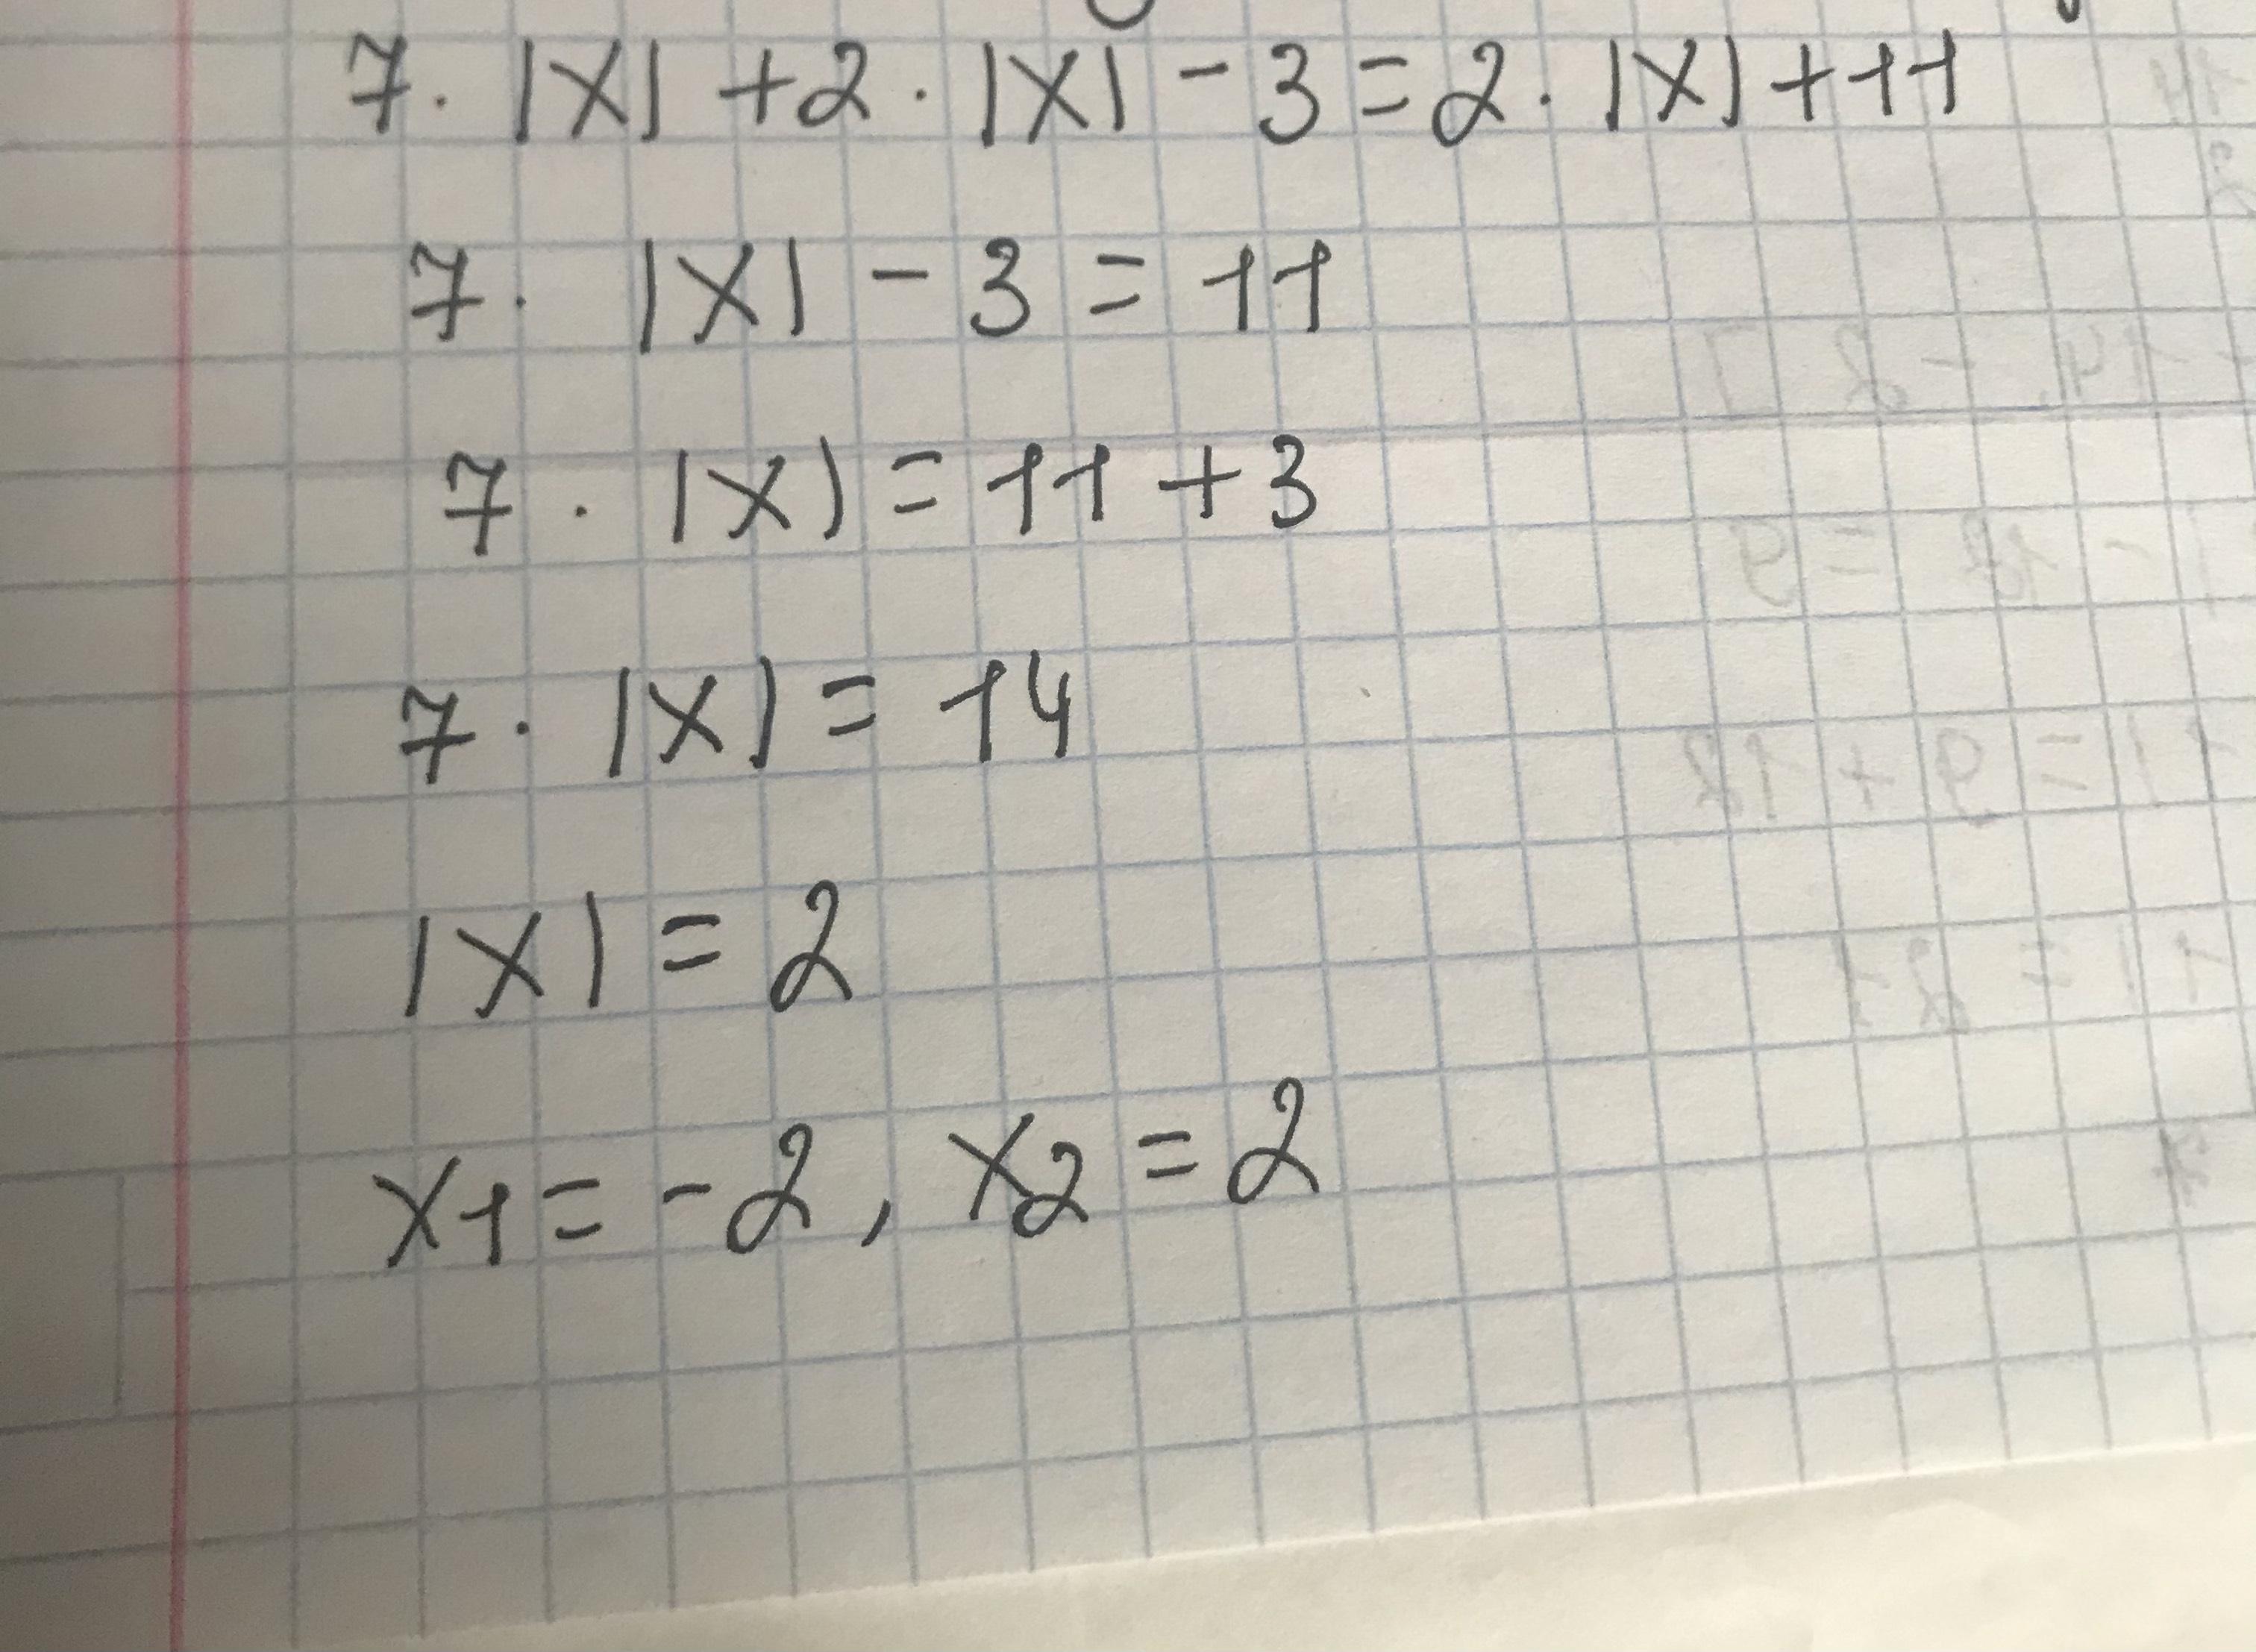 7 · |X| + 2 · |X| - 3 = 2 · |X| + 11
7 · |X| - 3 = 11
7 · |X| = 11 + 3
7 · |X| = 14
|X| = 2
X1 = -2, X2 = 2